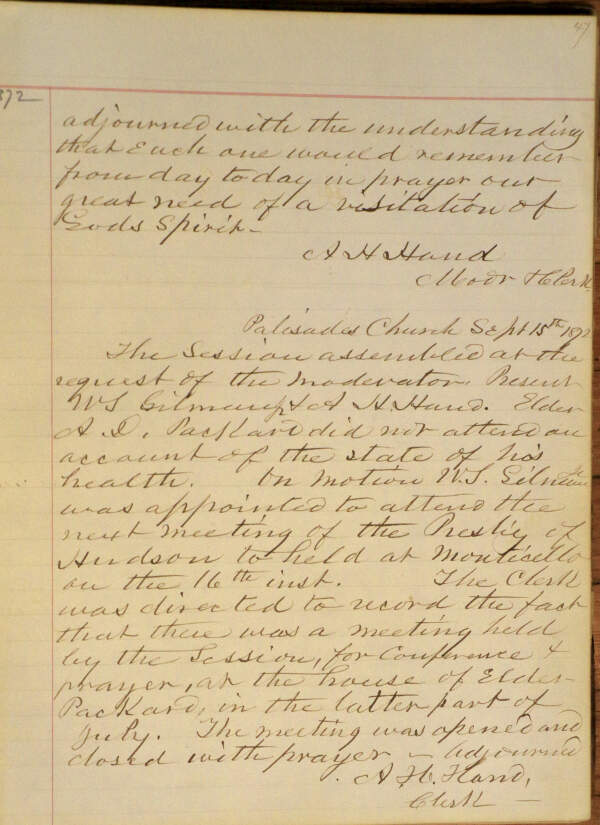 47
1872
adjourned with the understanding
that Each one would remember
from day to day in prayer our
great need of a visitation of
Gods Spirit -
A H Hand
Modr & Clerk
Palisades Church Sept 15th 1872
The Session assembled at the
request of the Moderator. Present
W S Gilman & A H Hand. Elder
A. D. Packard did not attend on
account of the state of his
health. On Motion W. S. Gilman
was appointed to attend the
next meeting of the Presby of
Hudson to held at Monticello
on the 16th inst. The Clerk
was directed to record the fact
that there was a meeting held
by the Session, for Conference &
prayer, at the house of Elder
Packard, in the latter part of
July. The meeting was opened and
closed with prayer - Adjourned
A. H. Hand,
Clerk -